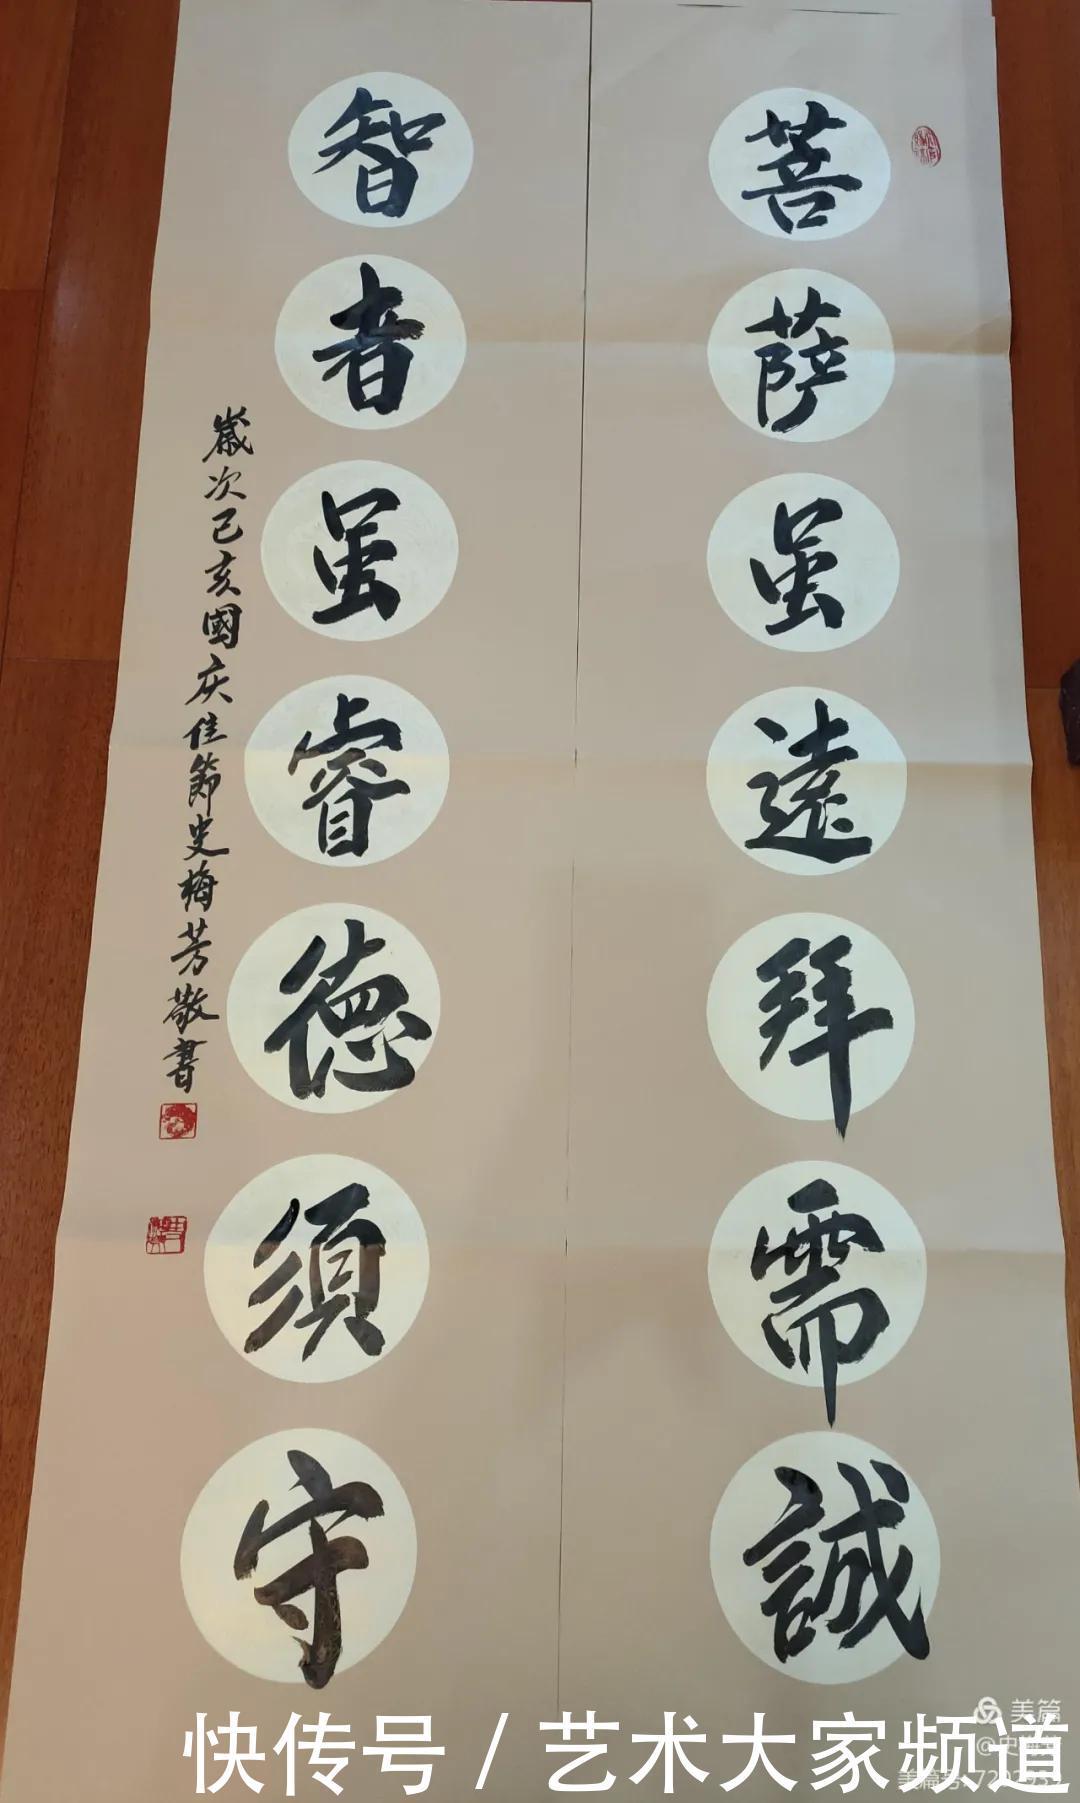 菩萨虽遠拜需誠
智者虽睿德須守
歲次己亥國庆佳節史梅芳敬書
美篇
快传号 / 艺术大家频道